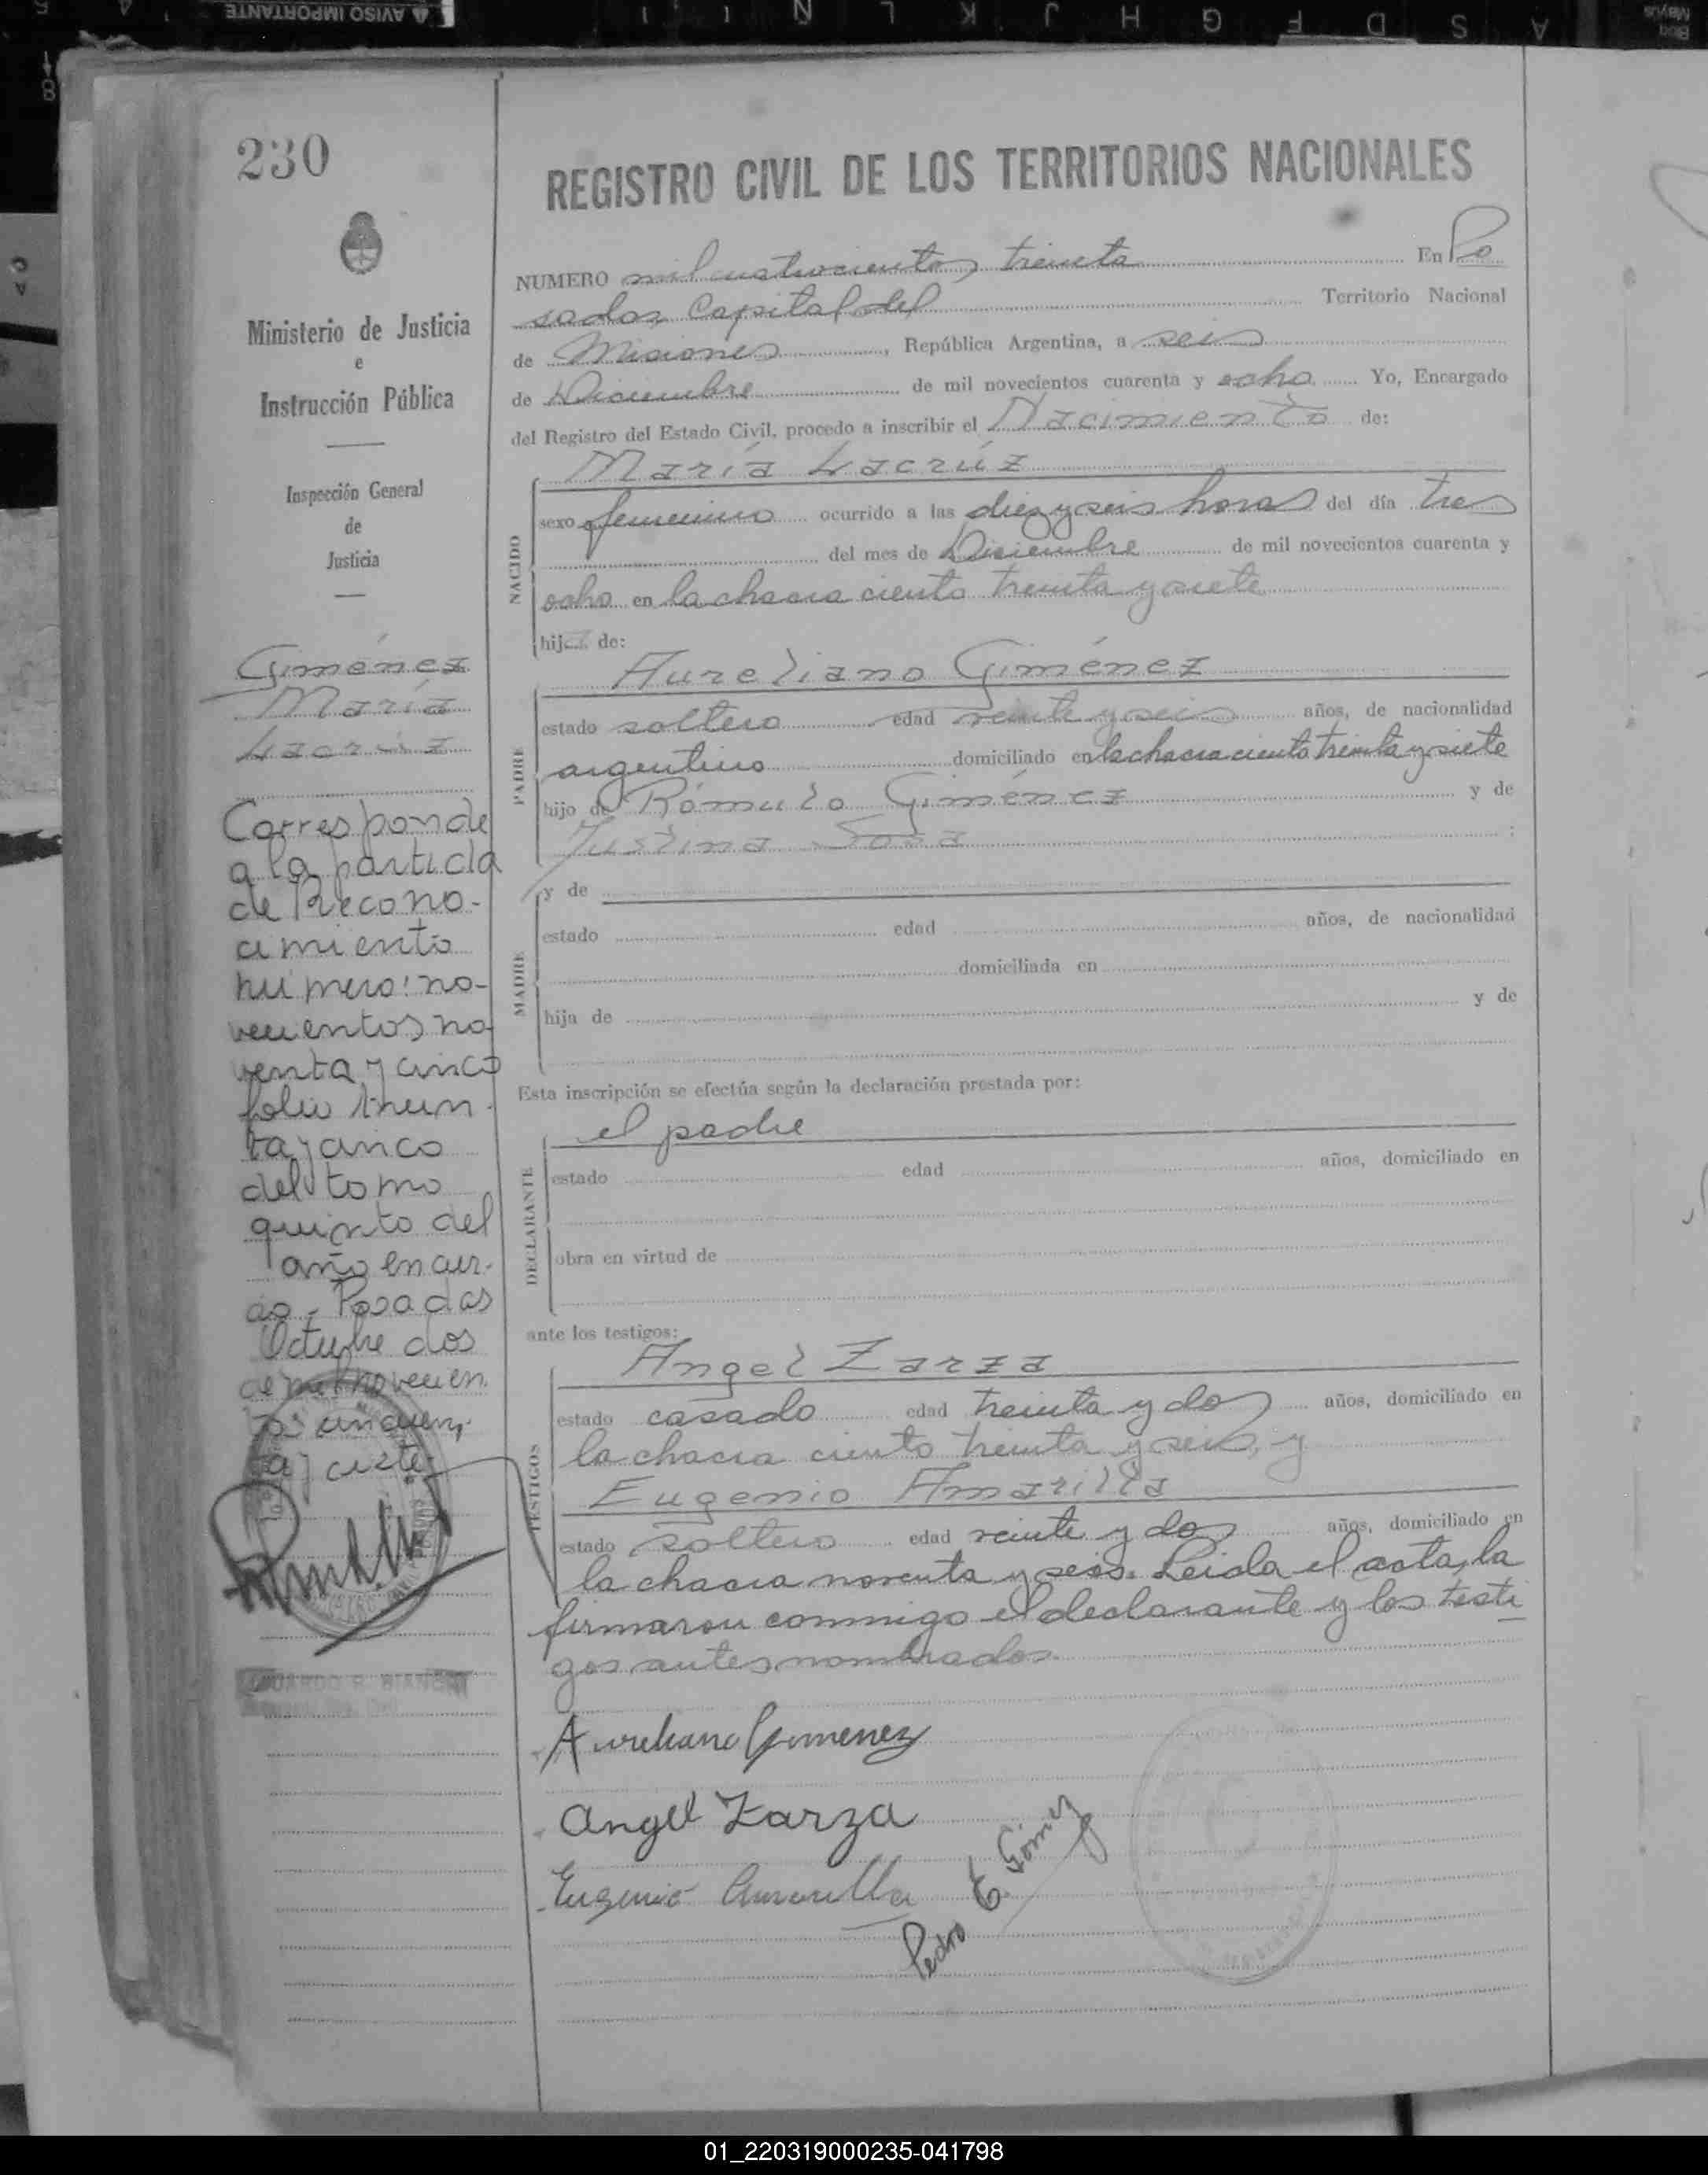 AVISO IMPORTANTE
A S D F G H J K L Ñ
230
REGISTRO CIVIL DE LOS TERRITORIOS NACIONALES
Ministerio de Justicia
e
Instrucción Pública
Inspección General
de
Justicia
Giménez
María
Lacrúz
Corresponde
a la partida
de Recono-
cimiento
número: no-
vecientos no
venta y cinco
folio trein-
ta y cinco
del tomo
quinto del
año en cur-
so - Posadas
Octubre dos
de mil novecien
tos cincuen
ta y siete
EDUARDO R. BIANCHI
NUMERO mil cuatrocientos treinta En Po
sadas Capital del Territorio Nacional
de Misiones, República Argentina, a seis
de Diciembre de mil novecientos cuarenta y ocho Yo, Encargado
del Registro del Estado Civil, procedo a inscribir el Nacimiento de:
María Lacrúz
NACIDO
sexo femenino ocurrido a las diez y seis horas del día tres
del mes de Diciembre de mil novecientos cuarenta y
ocho en la chacra ciento treinta y siete
hija de:
Aureliano Giménez
PADRE
estado soltero edad veinte y seis años, de nacionalidad
argentino domiciliado en la chacra ciento treinta y siete
hijo de Rómulo Giménez y de
Justina Sosa :
y de
MADRE
estado edad años, de nacionalidad
domiciliada en
hija de y de
Esta inscripción se efectúa según la declaración prestada por:
el padre
DECLARANTE
estado edad años, domiciliado en
obra en virtud de
ante los testigos:
Angel Zarza
TESTIGOS
estado casado edad treinta y dos años, domiciliado en
la chacra ciento treinta y seis, y
Eugenio Amarilla
estado soltero edad veinte y dos años, domiciliado en
la chacra noventa y seis. Leida el acta, la
firmaron conmigo el declarante y los testi
gos antes nombrados.
Aureliano Gimenez
Angel Zarza
Eugenio Amarilla
Pedro E. Gómez
01_220319000235-041798